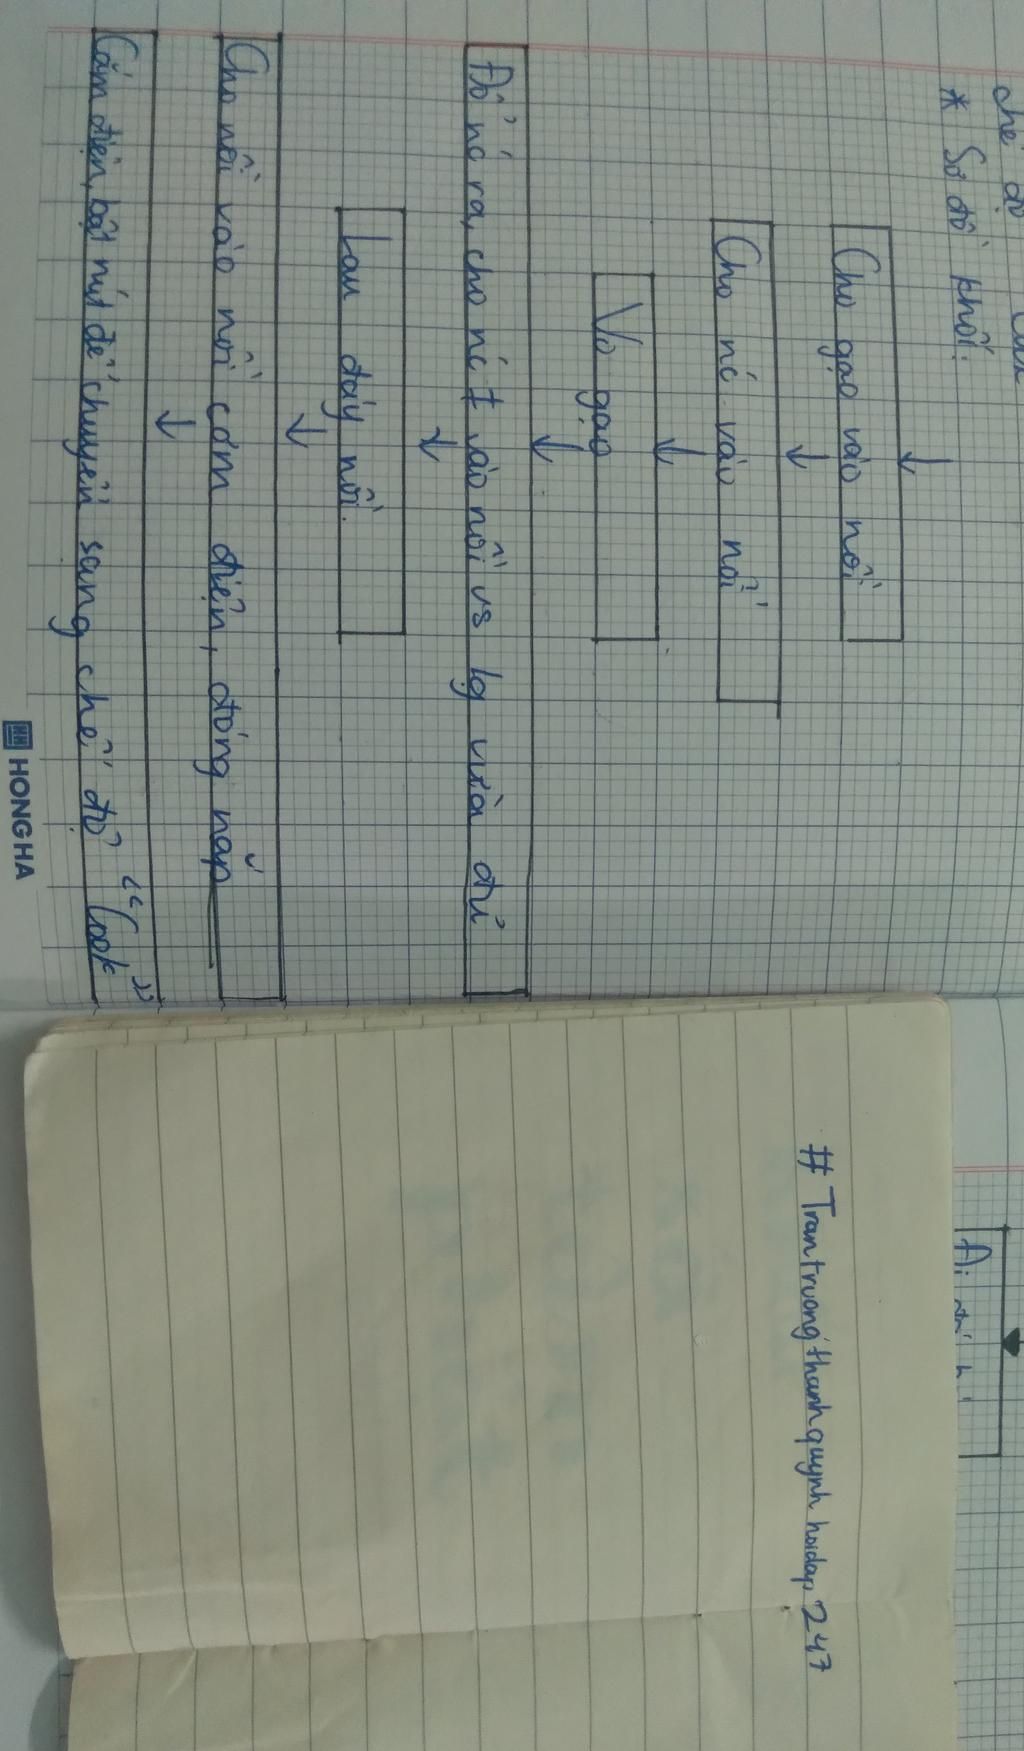 chế độ
* Sơ đồ khối:
Cho gạo vào nồi
Cho nc vào nồi
Vo gạo
Đổ nc ra, cho nc I vào nồi vs lg vừa đủ
Lau đáy nồi.
Cho nồi vào nồi cơm điện, đóng nắp
Cắm điện, bật nút để chuyển sang chế độ "Cook"
HONG HA
# Trantruongthanhquynh hoidap 247